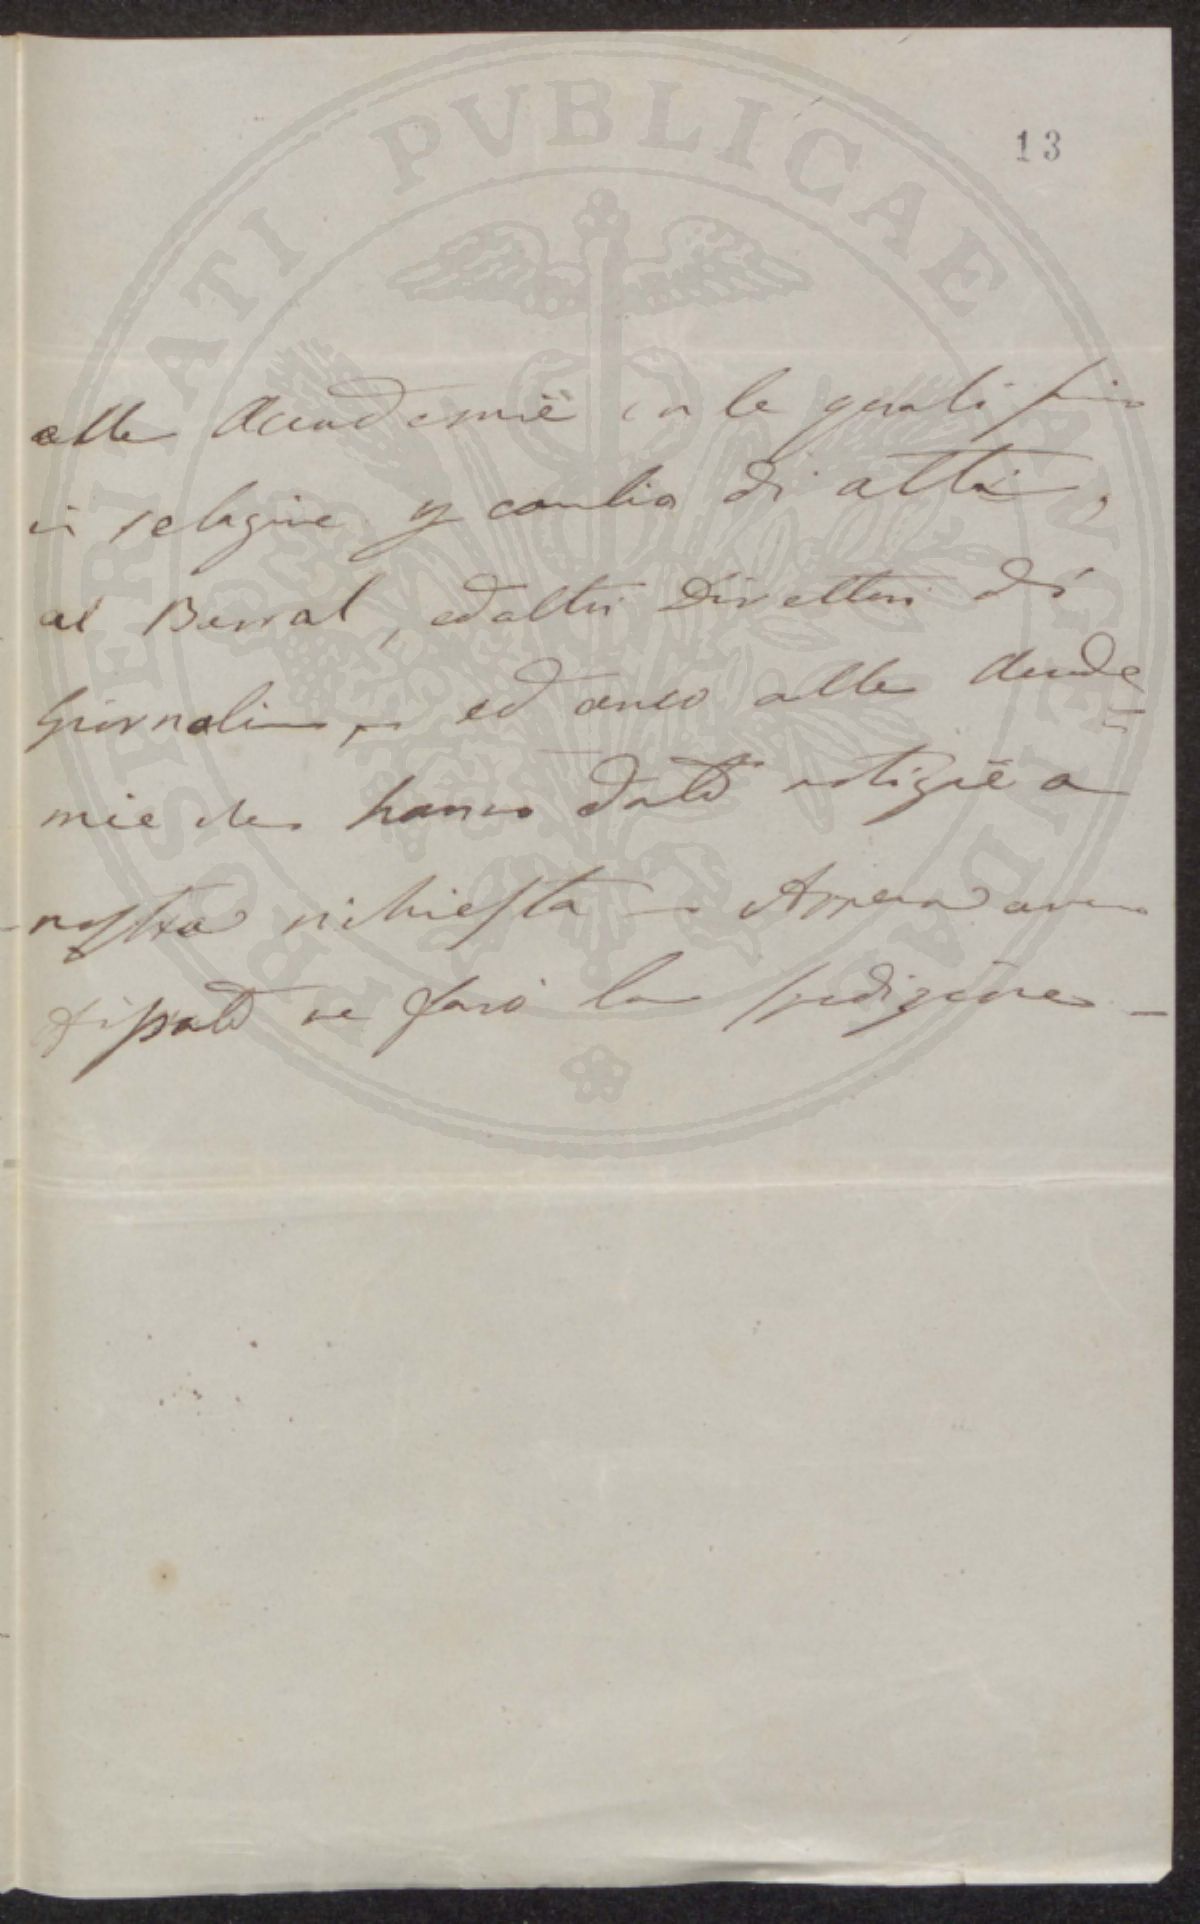 PROSPERITATI PVBLICAE AVGENDAE
13
alle Accademie con le quali siamo
in relazione p cambio di atti,
al Barral, ed altri Direttori di
Giornali, ed anco alle Accade=
mie che hanno dato notizie a
nostra richiesta – Appena avrò
ne farò la spedizione –